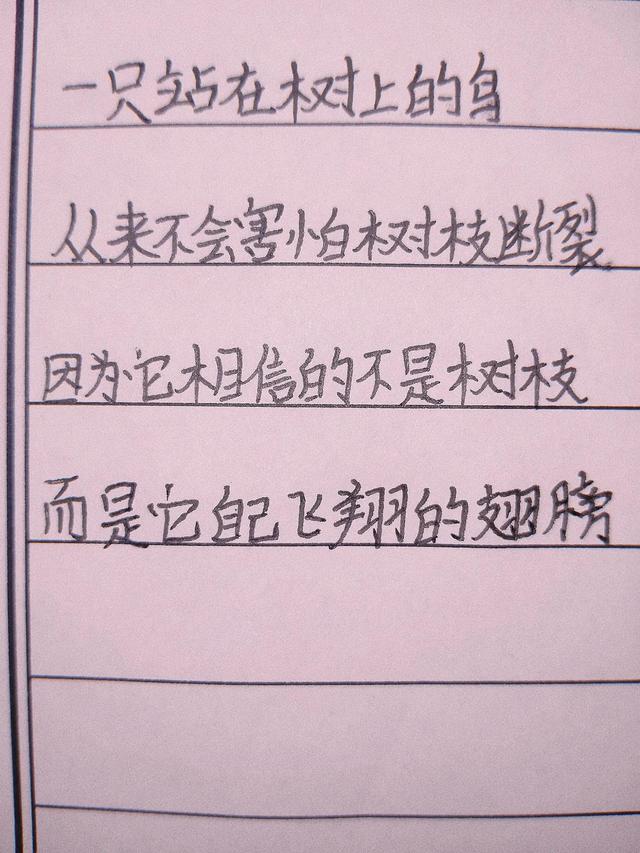 一只站在树上的鸟
从来不会害怕树枝断裂
因为它相信的不是树枝
而是它自己飞翔的翅膀